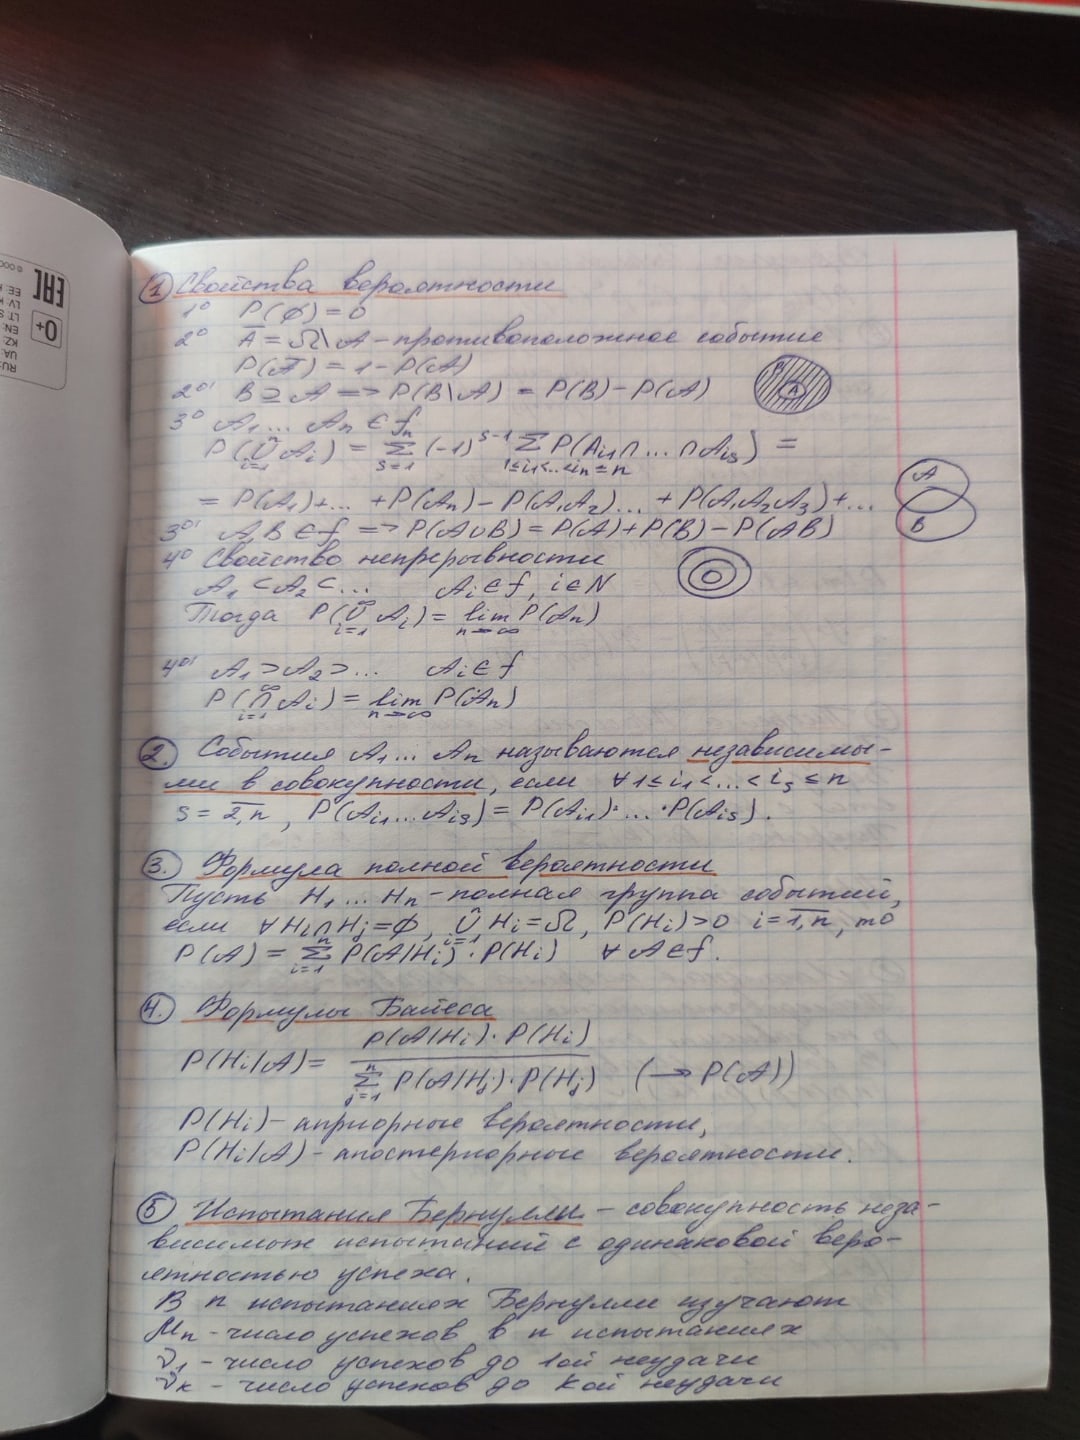 ЕАС
0+
RU:
UA:
KZ:
EN:
LT
LV
EE:
① Свойства вероятности
1⁰ P(∅)=0
2⁰ A̅ = Ω\A – противоположное событие
P(A̅) = 1 – P(A)
2⁰' B ⊇ A => P(B\A) = P(B) – P(A)
3⁰ A₁... Aₙ ∈ f
P(⋃ⁿᵢ₌₁ Aᵢ) = ∑ⁿₛ₌₁ (-1)ˢ⁻¹ ∑ P(Aᵢ₁∩...∩Aᵢₛ) =
1≤i₁<..<iₙ≤n
= P(A₁)+... +P(Aₙ) – P(A₁A₂)... + P(A₁A₂A₃)+...
3⁰' A,B ∈ f => P(A∪B) = P(A)+P(B) – P(AB)
4⁰ Свойство непрерывности
A₁ ⊂ A₂ ⊂ ... Aᵢ ∈ f, i∈N
Тогда P(⋃^∞ᵢ₌₁ Aᵢ) = lim n→∞ P(Aₙ)
4⁰' A₁ ⊃ A₂ ⊃ ... Aᵢ ∈ f
P(⋂^∞ᵢ₌₁ Aᵢ) = lim n→∞ P(Aₙ)
A
A
B
②. События A₁... Aₙ называются независимы-
ми в совокупности, если ∀ 1≤i₁<...<iₛ≤n
s = 2,n, P(Aᵢ₁...Aᵢₛ) = P(Aᵢ₁)·...·P(Aᵢₛ).
③. Формула полной вероятности
Пусть H₁... Hₙ – полная группа событий,
если ∀ Hᵢ∩Hⱼ=∅, ⋃ⁿᵢ₌₁ Hᵢ=Ω, P(Hᵢ)>0 i=1,n, то
P(A) = ∑ⁿᵢ₌₁ P(A/Hᵢ)·P(Hᵢ) ∀ A∈f.
④. Формулы Байеса
P(A/Hᵢ)·P(Hᵢ)
P(Hᵢ/A) =
∑ⁿⱼ₌₁ P(A/Hⱼ)·P(Hⱼ) (→ P(A))
P(Hᵢ) – априорные вероятности,
P(Hᵢ/A) – апостериорные вероятности.
⑤ Испытания Бернулли – совокупность неза-
висимых испытаний с одинаковой веро-
ятностью успеха.
В n испытаниях Бернулли изучают
μₙ – число успехов в n испытаниях
ν₁ – число успехов до 1ой неудачи
νₖ – число успехов до kой неудачи